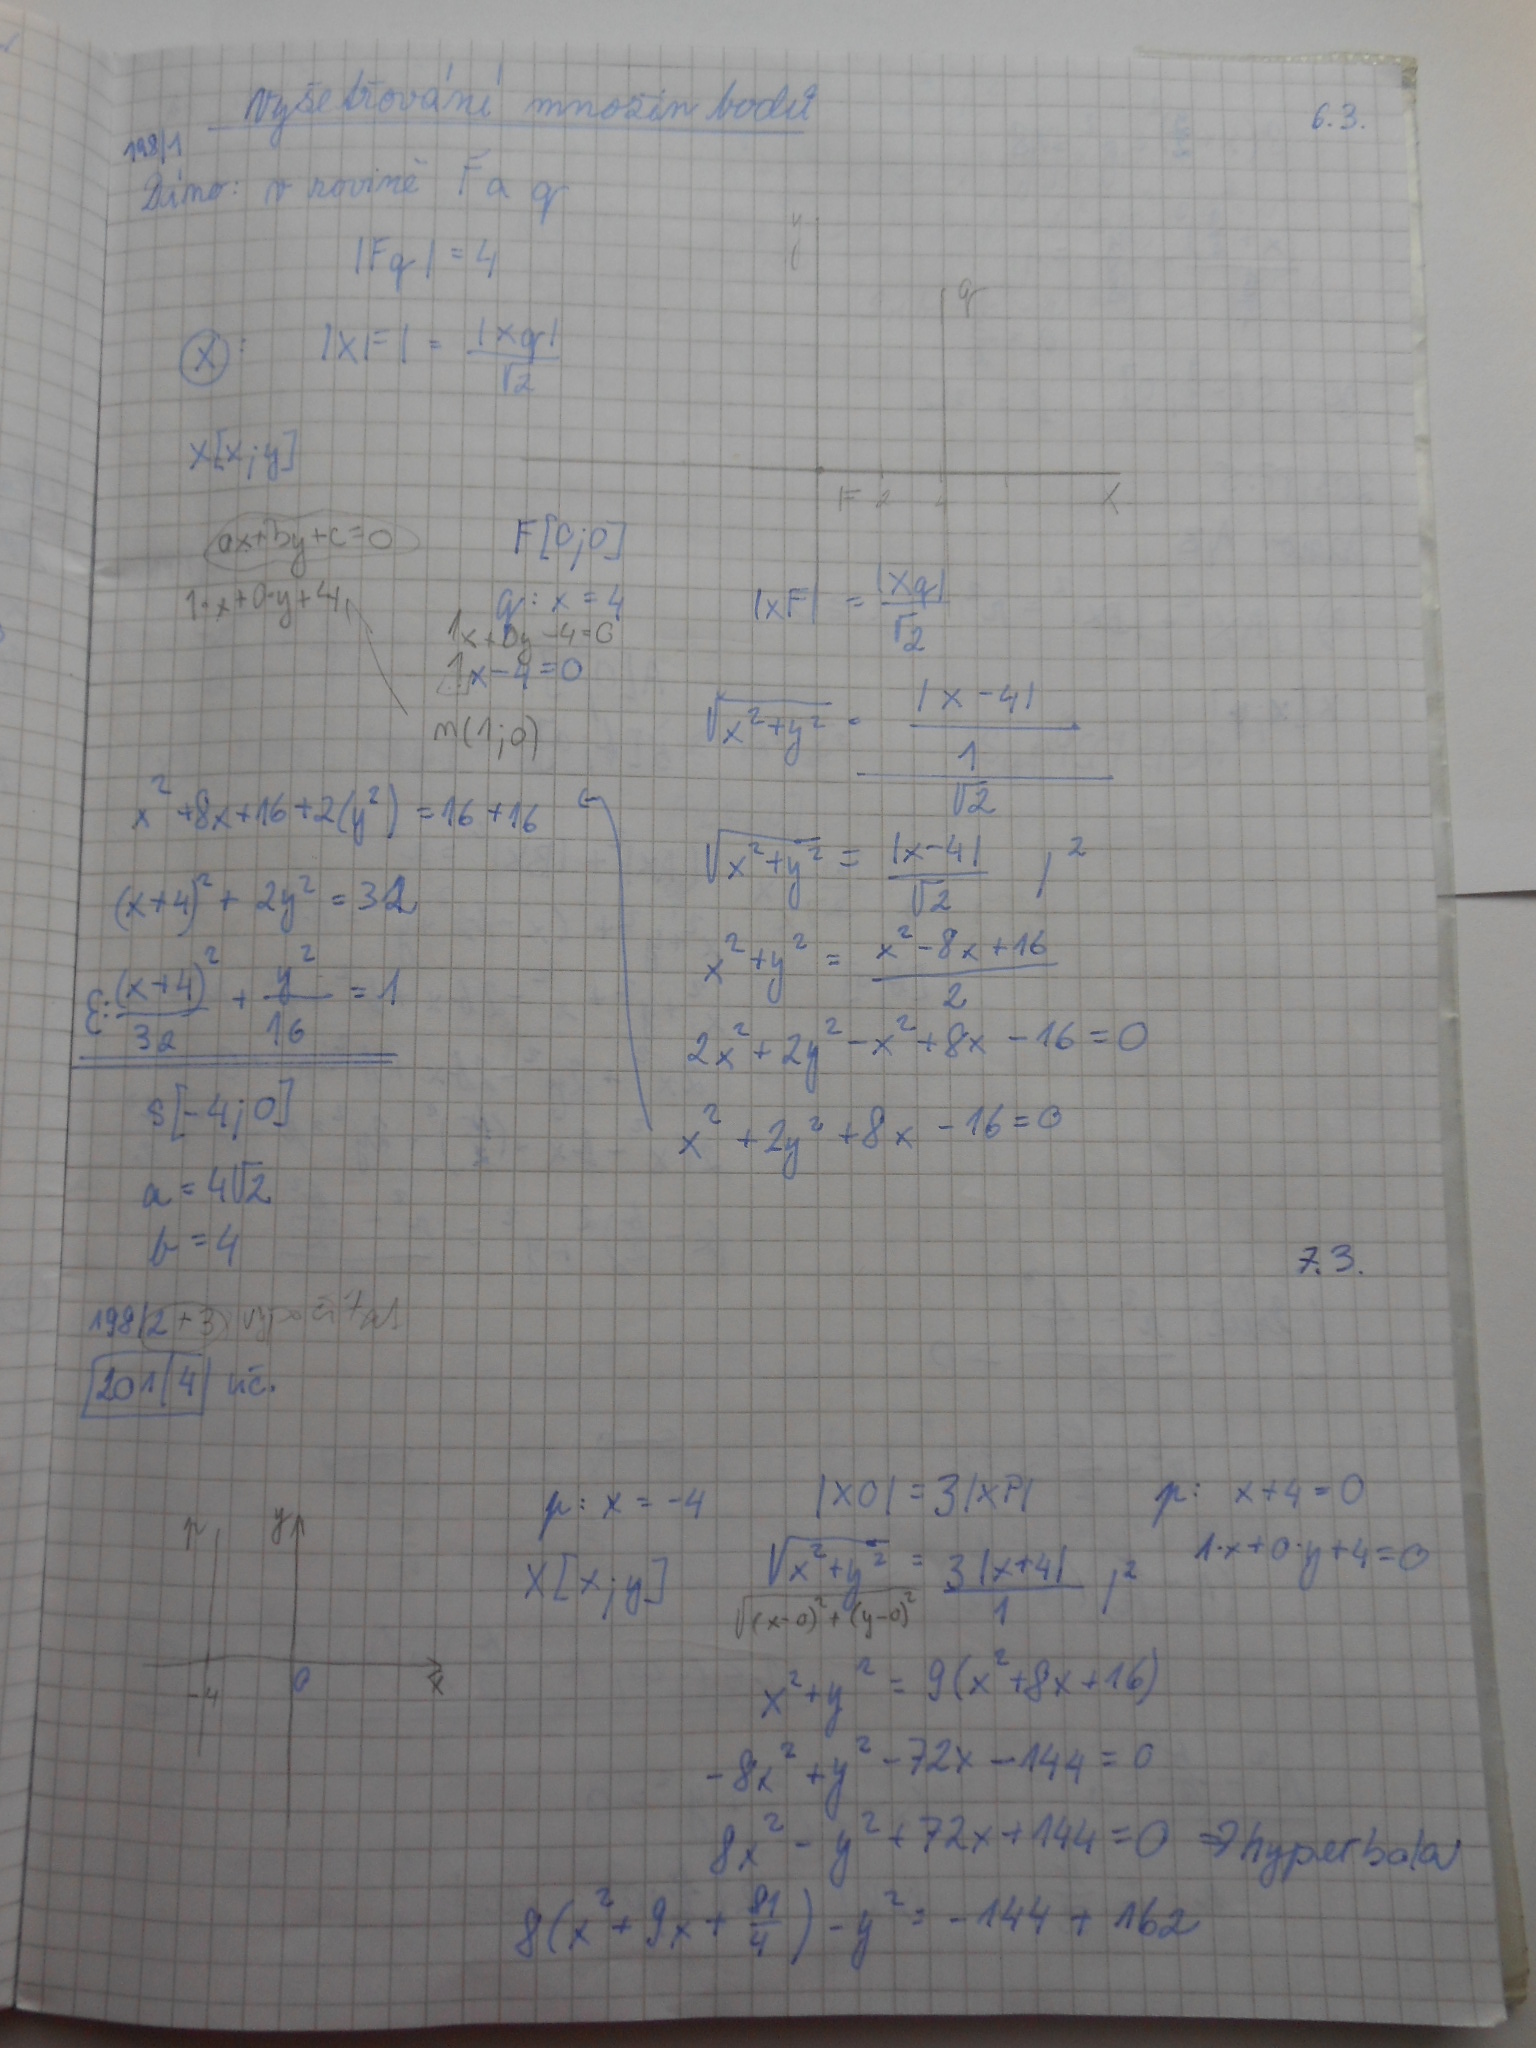 Vyšetřování množin bodů
6.3.
198/1
Dáno: v rovině F a q
|Fq| = 4
X: |XF| = |Xq| / √2
X[x;y]
y
q
F 2 4 x
ax+by+c=0
1·x+0·y+4
F[0;0]
q: x = 4
1x+0y-4=0
1x-4=0
n(1;0)
|XF| = |Xq| / √2
√(x²+y²) = (|x-4| / 1) / √2
√(x²+y²) = |x-4| / √2 /²
x²+y² = (x²-8x+16) / 2
2x²+2y²-x²+8x-16=0
x²+2y²+8x-16=0
x²+8x+16+2(y²)=16+16
(x+4)²+2y²=32
ε: (x+4)²/32 + y²/16 = 1
S[-4;0]
a=4√2
b=4
7.3.
198/2+3
201/4 uč.
p y
-4 0 x
p: x = -4
X[x;y]
|XO| = 3|XP|
p: x+4=0
1·x+0·y+4=0
√(x²+y²) = 3|x+4| / 1 /²
√((x-0)²+(y-0)²)
x²+y² = 9(x²+8x+16)
-8x²+y²-72x-144=0
8x²-y²+72x+144=0 ⇒ hyperbola
8(x²+9x+81/4)-y²=-144+162